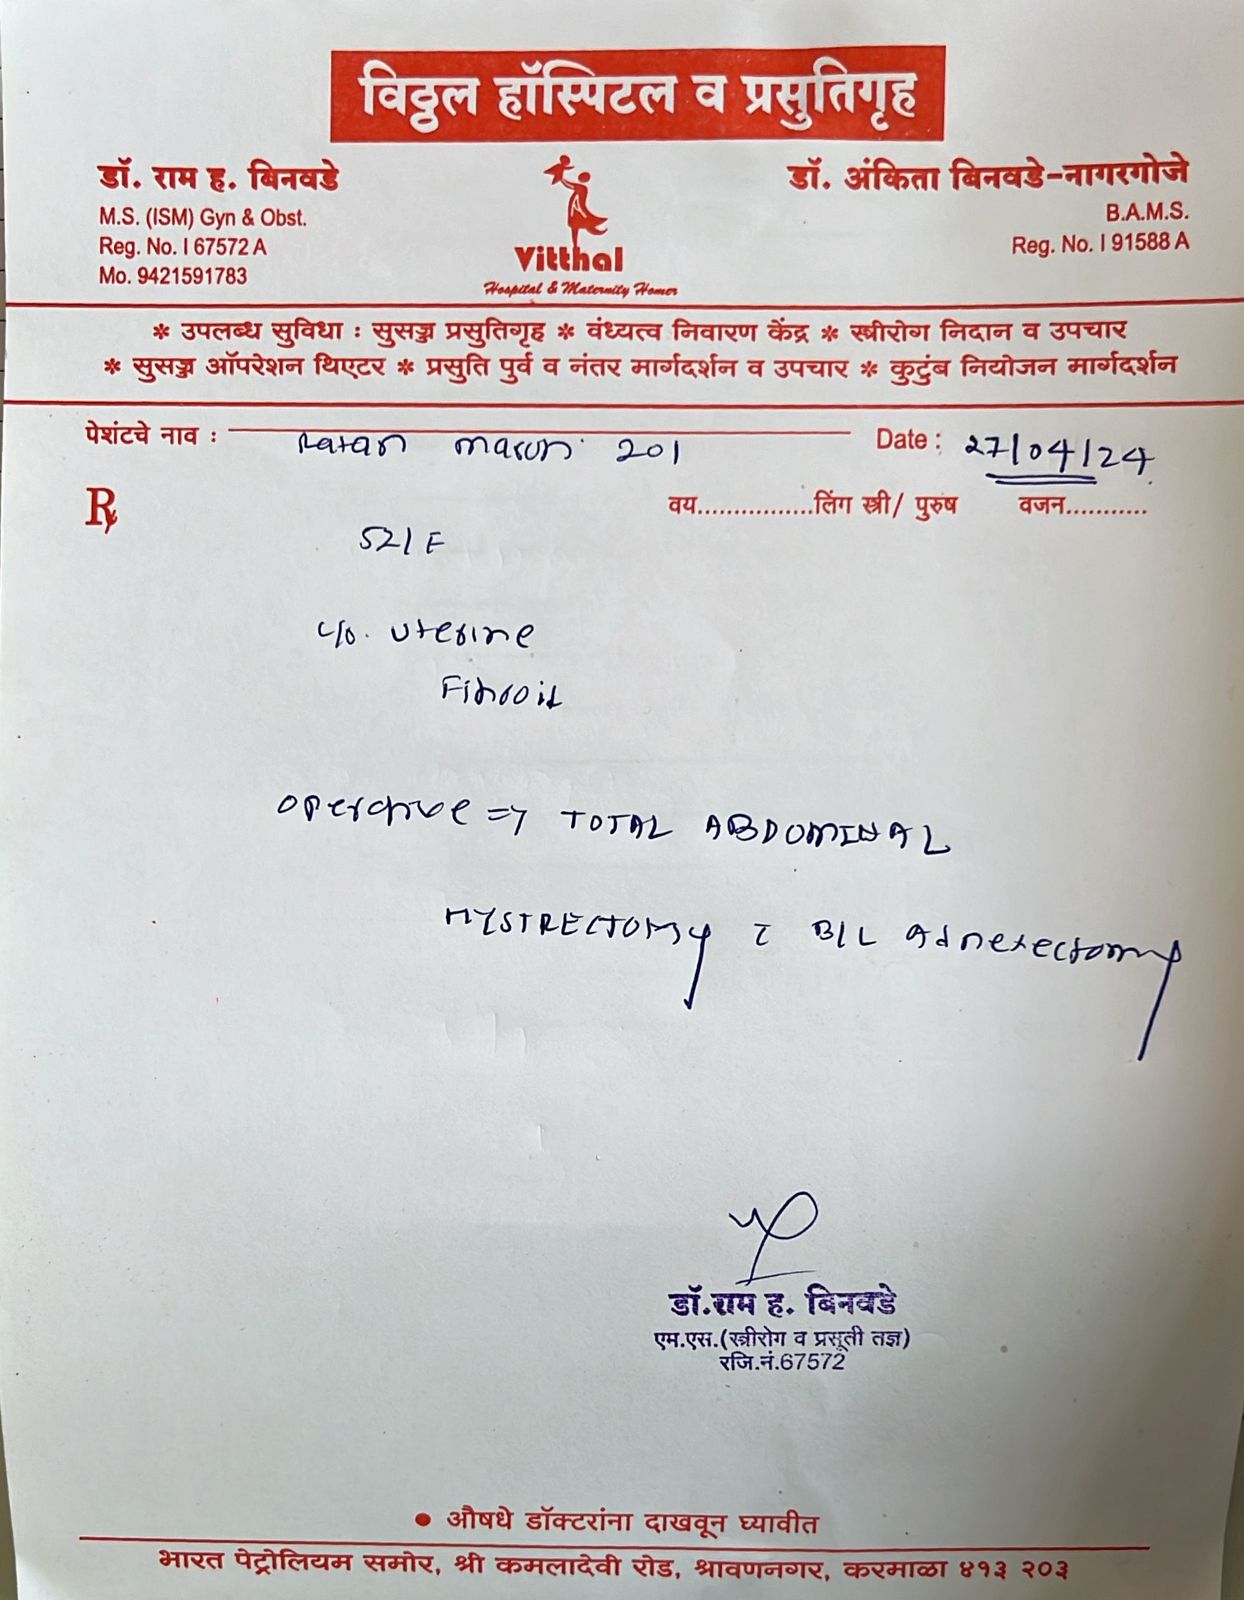 विठ्ठल हॉस्पिटल व प्रसुतिगृह
डॉ. राम ह. बिनवडे
M.S. (ISM) Gyn & Obst.
Reg. No. I 67572 A
Mo. 9421591783
Vitthal
Hospital & Maternity Homer
डॉ. अंकिता बिनवडे-नागरगोजे
B.A.M.S.
Reg. No. I 91588 A
* उपलब्ध सुविधा : सुसज्ज प्रसुतिगृह * वंध्यत्व निवारण केंद्र * स्त्रीरोग निदान व उपचार
* सुसज्ज ऑपरेशन थिएटर * प्रसुति पुर्व व नंतर मार्गदर्शन व उपचार * कुटुंब नियोजन मार्गदर्शन
पेशंटचे नाव : Ratan 201 Date : 27/04/24
Rx वय................लिंग स्त्री/ पुरुष वजन...........
52/F
c/o. Uterine
Fibroid
operative => TOTAL ABDOMINAL
HYSTRECTOMY c B/L Adnexectomy
डॉ.राम ह. बिनवडे
एम.एस.(स्त्रीरोग व प्रसूती तज्ञ)
रजि.नं.67572
• औषधे डॉक्टरांना दाखवून घ्यावीत
भारत पेट्रोलियम समोर, श्री कमलादेवी रोड, श्रावणनगर, करमाळा ४१३ २०३